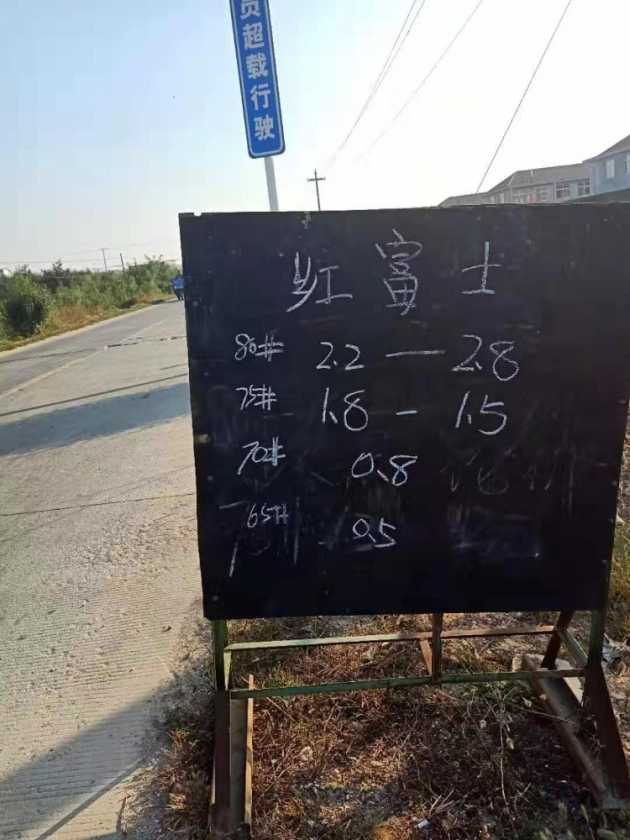 员超载行驶
红富士
80# 2.2 — 2.8
75# 1.8 - 1.5
70# 0.8
65# 0.5